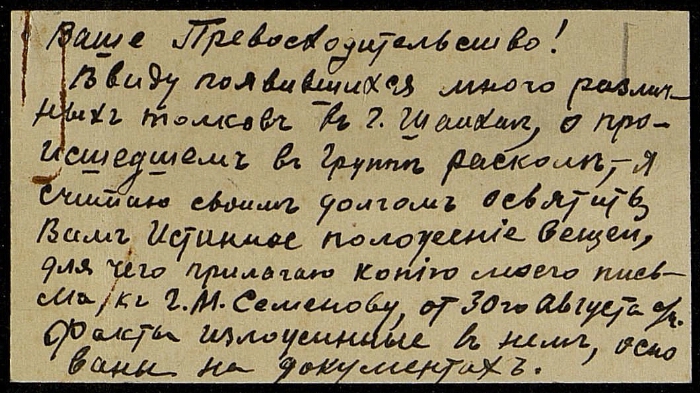 Ваше Превосходительство!
Ввиду появившихся много различ-
ныхъ толковъ въ г. Шанхаѣ, о про-
исшедшемъ въ Группѣ расколѣ, – я
считаю своимъ долгомъ освятить
Вамъ Истинное положеніе вещей,
для чего прилагаю копію моего пись-
ма, къ Г. М. Семенову, от 30го Августа с/г.
Факты изложенные въ немъ, осно
ваны на документахъ.